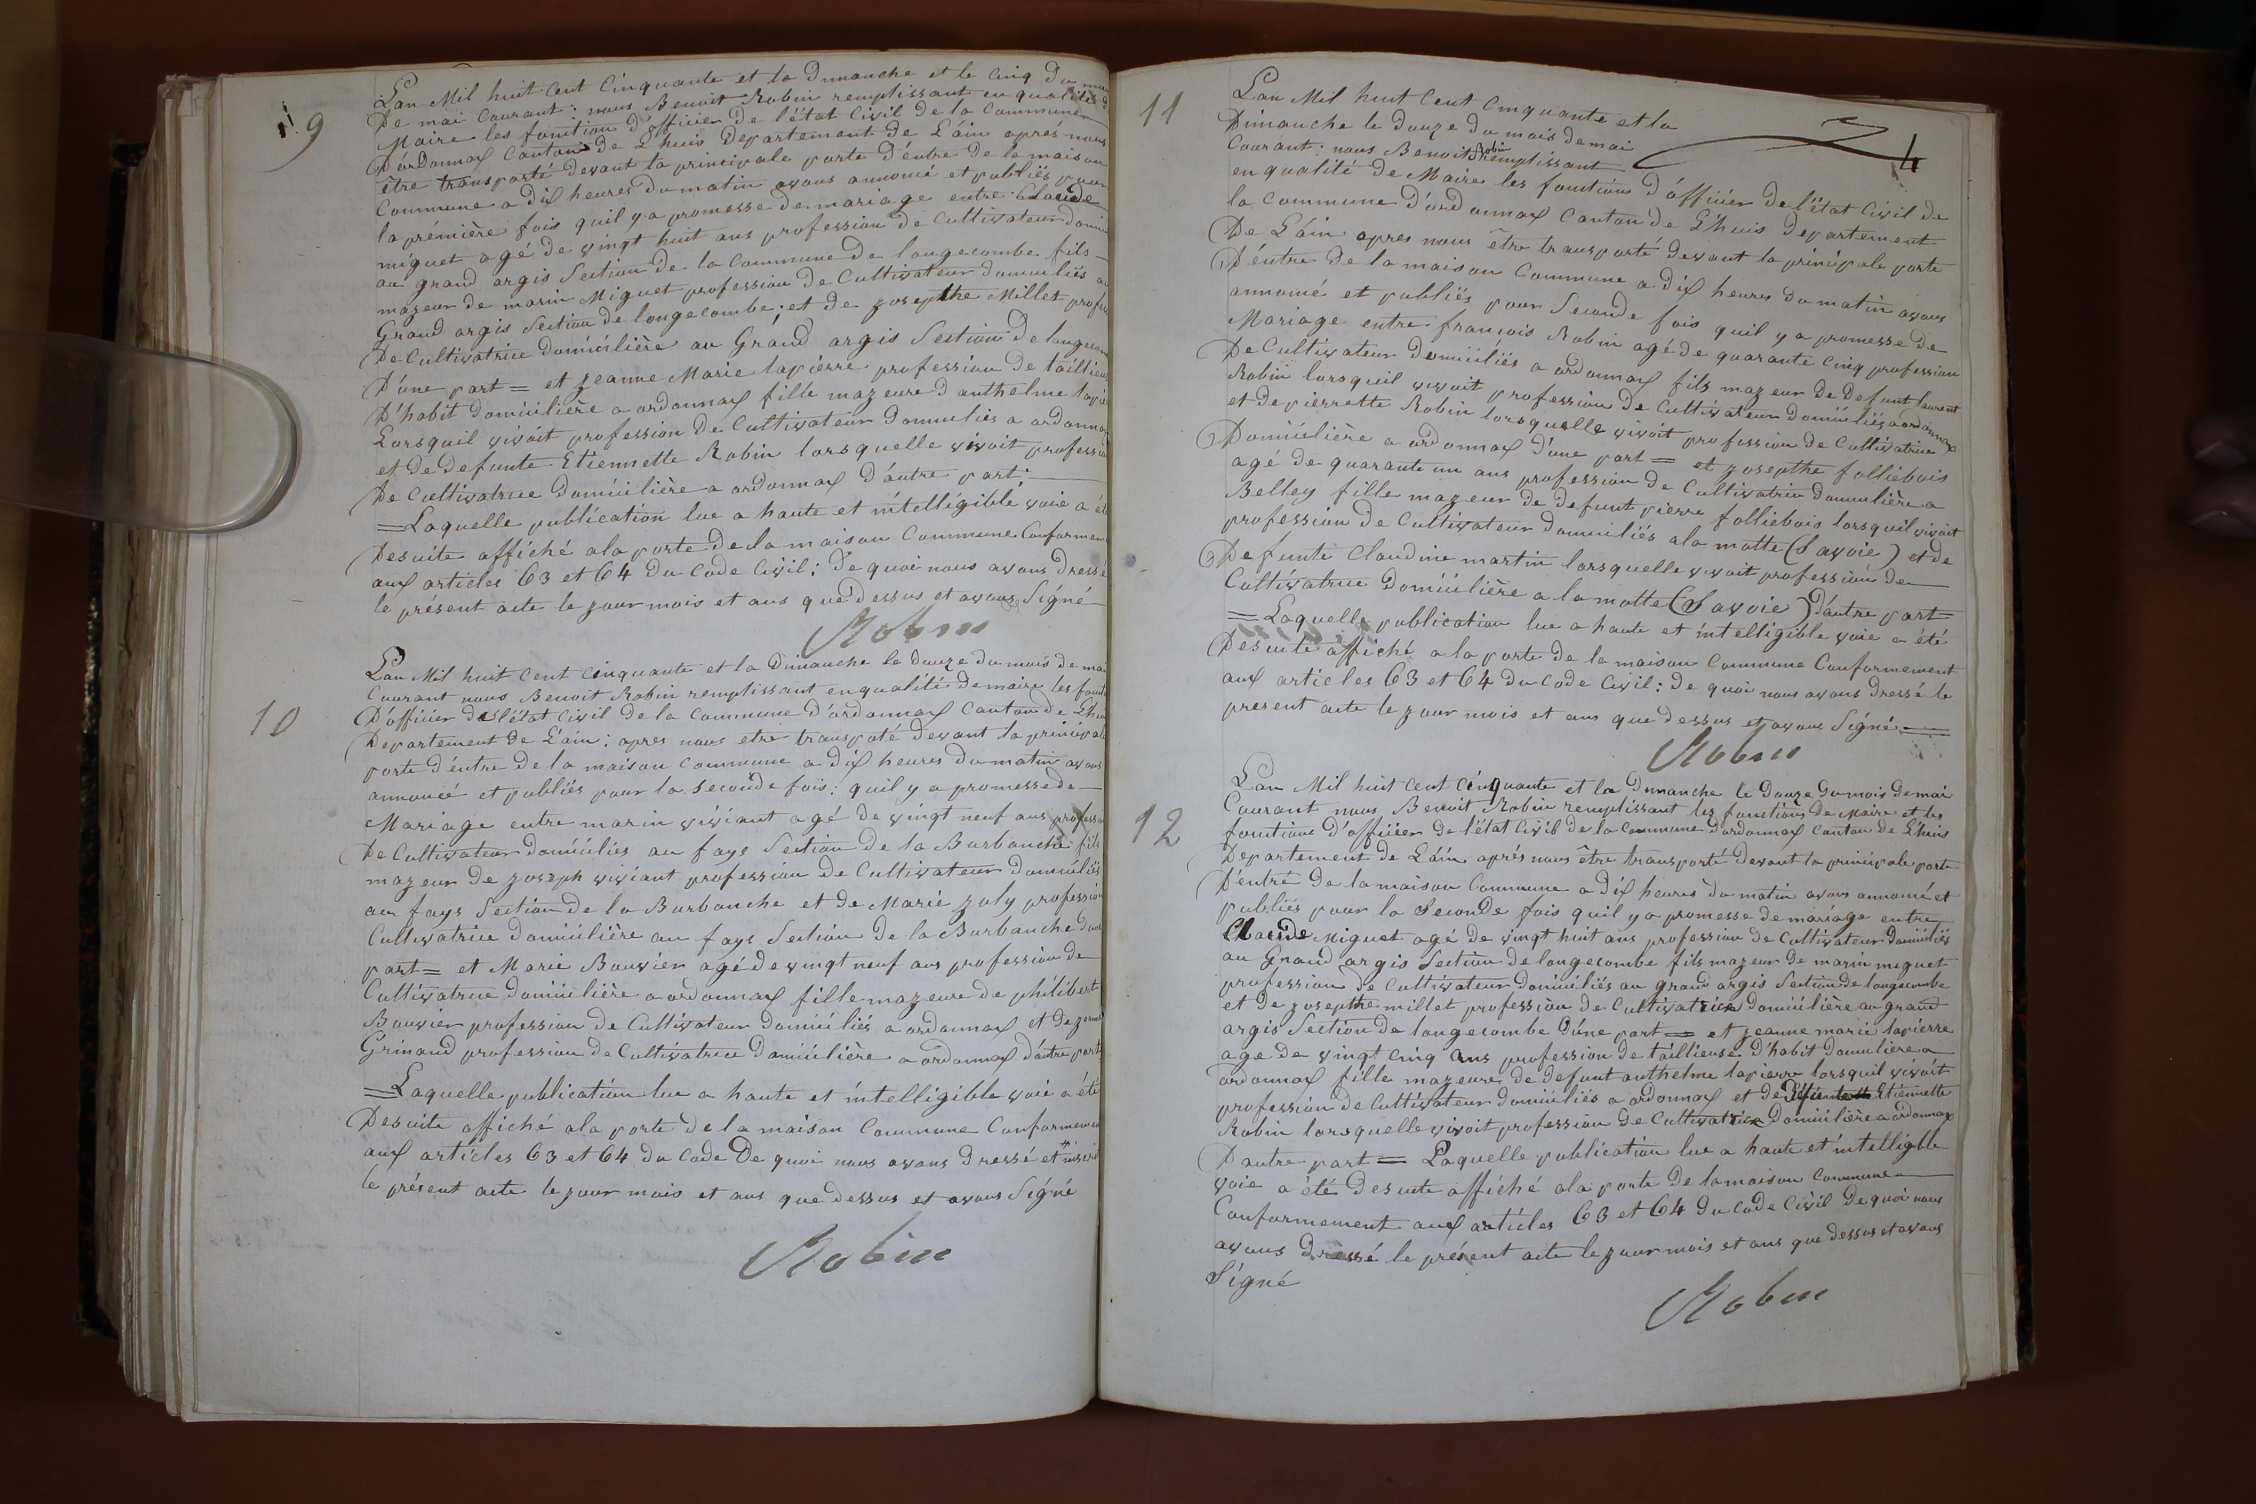 n° 9
Lan Mil huit cent Cinquante et la Dimanche et le Cinq du mois
De mai Courant : nous Benoit Robin remplissant en qualité de
Maire les fonction d'officier de l'état Civil de la Commune
D'ordonnax Canton de L'huis Departement de L'ain aprés nous
être transporté devant la principale porte d'éntre de la maison
Commune a dix heures du matin avons annoncé et publiés pour
la prémière fois quil y a promesse de mariage entre Claude
miguet agé de vingt huit ans profession de Cultivateur domi
au grand argis Section de la Commune de longecombe fils
mazeur de marin Miguet profession de Cultivateur domiciliés au
Grand argis Section de longecombe ; et de zosepthe Millet profes
De Cultivatrice domicilière au Grand argis Section De longecom
D'une part = et zeanne Marie lapièrre profession de tailleu
D'habit domicilière a ordonnax fille mazeure d anthelme lapie
Lorsquil vivoit profession de Cultivateur domiciliés a ordonnax
et de defunte Etiennette Robin lorsquelle vivoit profession
De Cultivatrice domicilière a ordonnax d'autre part :
= Laquelle publication lue a haute et intelligible voie a été
Desuite affiché ala porte de la maison Commune Conformem
aux articles 63 et 64 du Code Civil : de quoi nous avons dressé
le présent acte le zour mois et ans que dessus et avons Signé
Robin
10
Lan Mil huit Cent Cinquante et la Dimanche le douze du mois de mai
Courant nous Benoit Robin remplissant en qualité de maire les foncti
D'officier de l'état Civil de la Commune d'ordonnax Canton de L'huis
Departement de L'ain : apres nous etre transpoté devant la principale
porte d'éntre de la maison Commune a dix heures du matin avons
annoncé et publiés pour la seconde fois : quil y a promesse de
Mariage entre marin viviant agé de vingt neuf ans profession
De Cultivateur domiciliés au fays Section de la Burbanche fils
mazeur de zoseph viviant profession de Cultivateur domiciliés
au fays Section de la Burbanche et de Marie zoly profession
Cultivatrice domicilière au fays Section de la Burbanche d'une
part = et Marie Bouvier agé de vingt neuf ans profession de
Cultivatrice domicilière a ordonnax fille mazeure de philibert
Bouvier profession de Cultivateur domiciliés a ordonnax et de
Grinand profession de Cultivatrice domicilière a ordonnax d'autre part
= Laquelle publication lue a haute et intelligible voie a été
Desuite affiché ala porte de la maison Commune Conformemen
aux articles 63 et 64 du Code De quoi nous avons dressé et inscrit
le présent acte le zour mois et ans que dessus et avons Signé
Robin
11
4
Lan Mil huit Cent Cinquante et la
Dimanche le douze du mois de mai
Courant : nous Benoit Robin remplissant
en qualité de Maire les fonctions d'officier de l'état Civil de
la Commune d'ordonnax Canton de L'huis Departement
De L'ain apres nous être transporté devant la principale porte
D'éntre de la maison Commune a dix heures du matin avons
annoncé et publiés pour Seconde fois quil y a promesse de
Mariage entre françois Robin agé de quarante Cinq profession
De Cultivateur domiciliés a ordonnax fils mazeur de Defunt laurent
Robin lorsquil vivoit profession de Cultivateur domiciliés a ordonnax
et de pierrette Robin lorsquelle vivoit profession de Cultivatrice
Domicilière a ordonnax d'une part = et zosepthe folliebois
agé de quarante un ans profession de Cultivatrice domicilière a
Belley fille mazeur de defunt pierre folliebois lorsquil vivoit
profession de Cultivateur domiciliés ala motte (Savoie) et de
Defunte Claudine martin lorsquelle vivoit profession de
Cultivatrice domicilière a la motte (Savoie) d'autre part
= Laquelle publication lue a haute et intelligible voie a été
Desuite affiché ala porte de la maison Commune Conformement
aux articles 63 et 64 du Code Civil : de quoi nous avons dressé le
present acte le zour mois et ans que dessus et avons Signé
Robin
12
Lan Mil huit Cent Cinquante et la Dimanche le Douze du mois de mai
Courant nous Benoit Robin remplissant les fonctions De Maire et les
fonctions d'officier de l'état Civil de la Commune d'ordonnax Canton de L'huis
Departement de L'ain aprés nous être transporté devant la principale porte
D'entré de la maison Commune a dix heures du matin avons annoncé et
publiés pour la Seconde fois quil y a promesse de mariage entre
Claude Miguet agé de vingt huit ans profession de Cultivateur domiciliés
au Grand argis Section de longecombe fils mazeur de marin miguet
profession de Cultivateur domiciliés au grand argis Section de longecombe
et de zosepthe millet profession de Cultivatrice domicilière au grand
argis Section de longecombe d'une part = et zeanne marie lapierre
age de vingt Cinq ans profession de taillieuse d'habit domicilière a
ordonnax fille mazeure de defunt anthelme lapierre lorsquil vivoit
profession de Cultivateur domiciliés a ordonnax et de Etiennette
Robin lorsquelle vivoit profession de Cultivatrice Domicilière a ordonnax
D'autre part = Laquelle publication lue a haute et intelligible
voie a été desuite affiché ala porte de la maison Commune
Conformement aux articles 63 et 64 du Code Civil De quoi nous
avons dressé le présent acte le zour mois et ans que dessus et avons
Signé
Robin